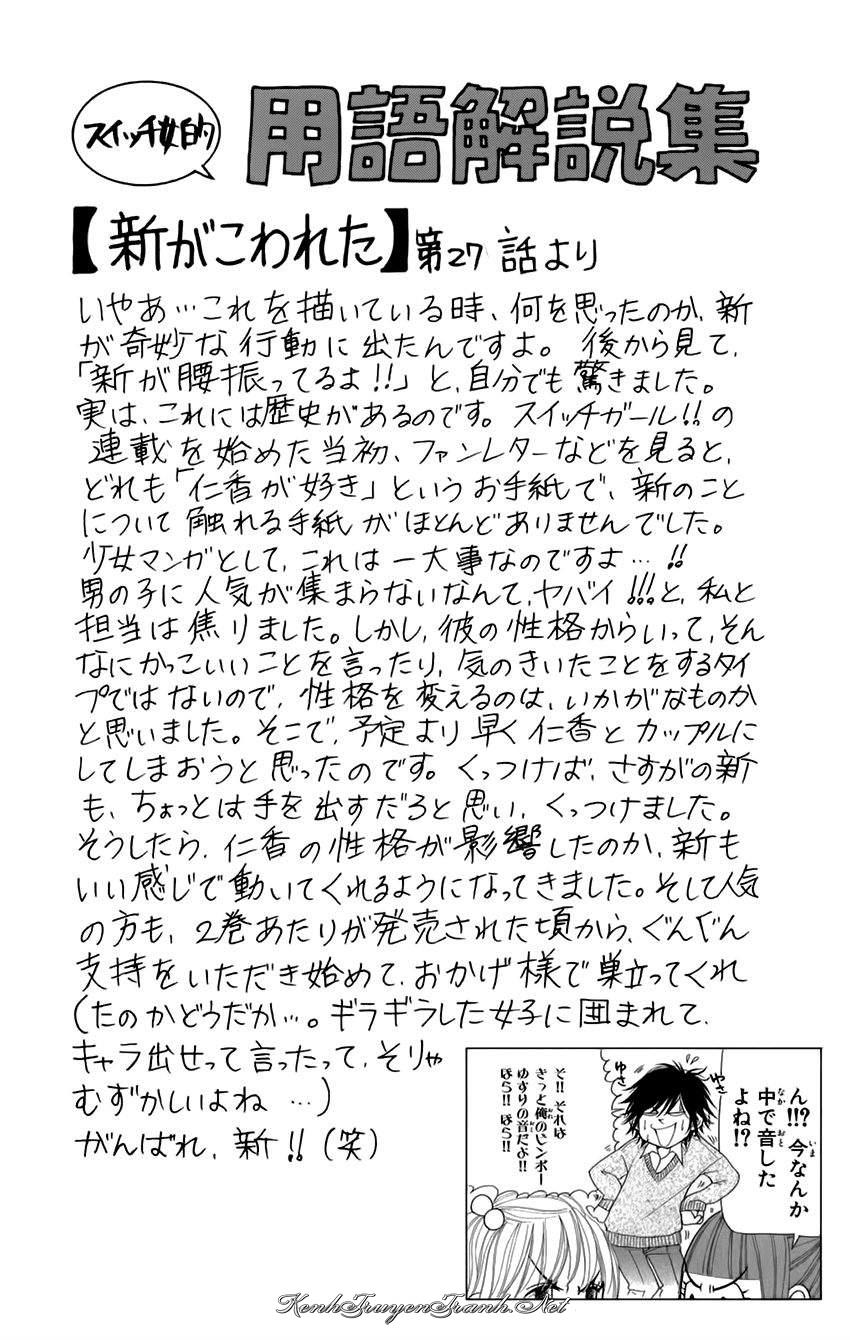 スイッチ女的
用語解説集
【新がこわれた】第27話より
いやあ…これを描いている時、何を思ったのか、新
が奇妙な行動に出たんですよ。後から見て、
「新が腰振ってるよ!!」と、自分でも驚きました。
実は、これには歴史があるのです。スイッチガール!!の
連載を始めた当初、ファンレターなどを見ると、
どれも「仁香が好き」というお手紙で、新のこと
について触れる手紙がほとんどありませんでした。
少女マンガとして、これは一大事なのですよ…!!
男の子に人気が集まらないなんて、ヤバイ!!!と、私と
担当は焦りました。しかし、彼の性格からいって、そん
なにかっこいいことを言ったり、気のきいたことをするタイ
プではないので、性格を変えるのは、いかがなものか
と思いました。そこで、予定より早く仁香とカップルに
してしまおうと思ったのです。くっつけば、さすがの新
も、ちょっとは手を出すだろと思い、くっつけました。
そうしたら、仁香の性格が影響したのか、新も
いい感じで動いてくれるようになってきました。そして人気
の方も、2巻あたりが発売された頃から、ぐんぐん
支持をいただき始めて、おかげ様で巣立ってくれ
(たのかどうだか…。ギラギラした女子に囲まれて、
キャラ出せって言ったって、そりゃ
むずかしいよね…)
がんばれ、新!!(笑)
ん!!?今なんか
いま
中で音した
なか おと
よね!?
ゆさ
ゆさ
そ!!それは
きっと俺のビンボー
おれ
ゆすりの音だよ!!
おと
ほら!!ほら!!
KenhTruyenTranh.Net